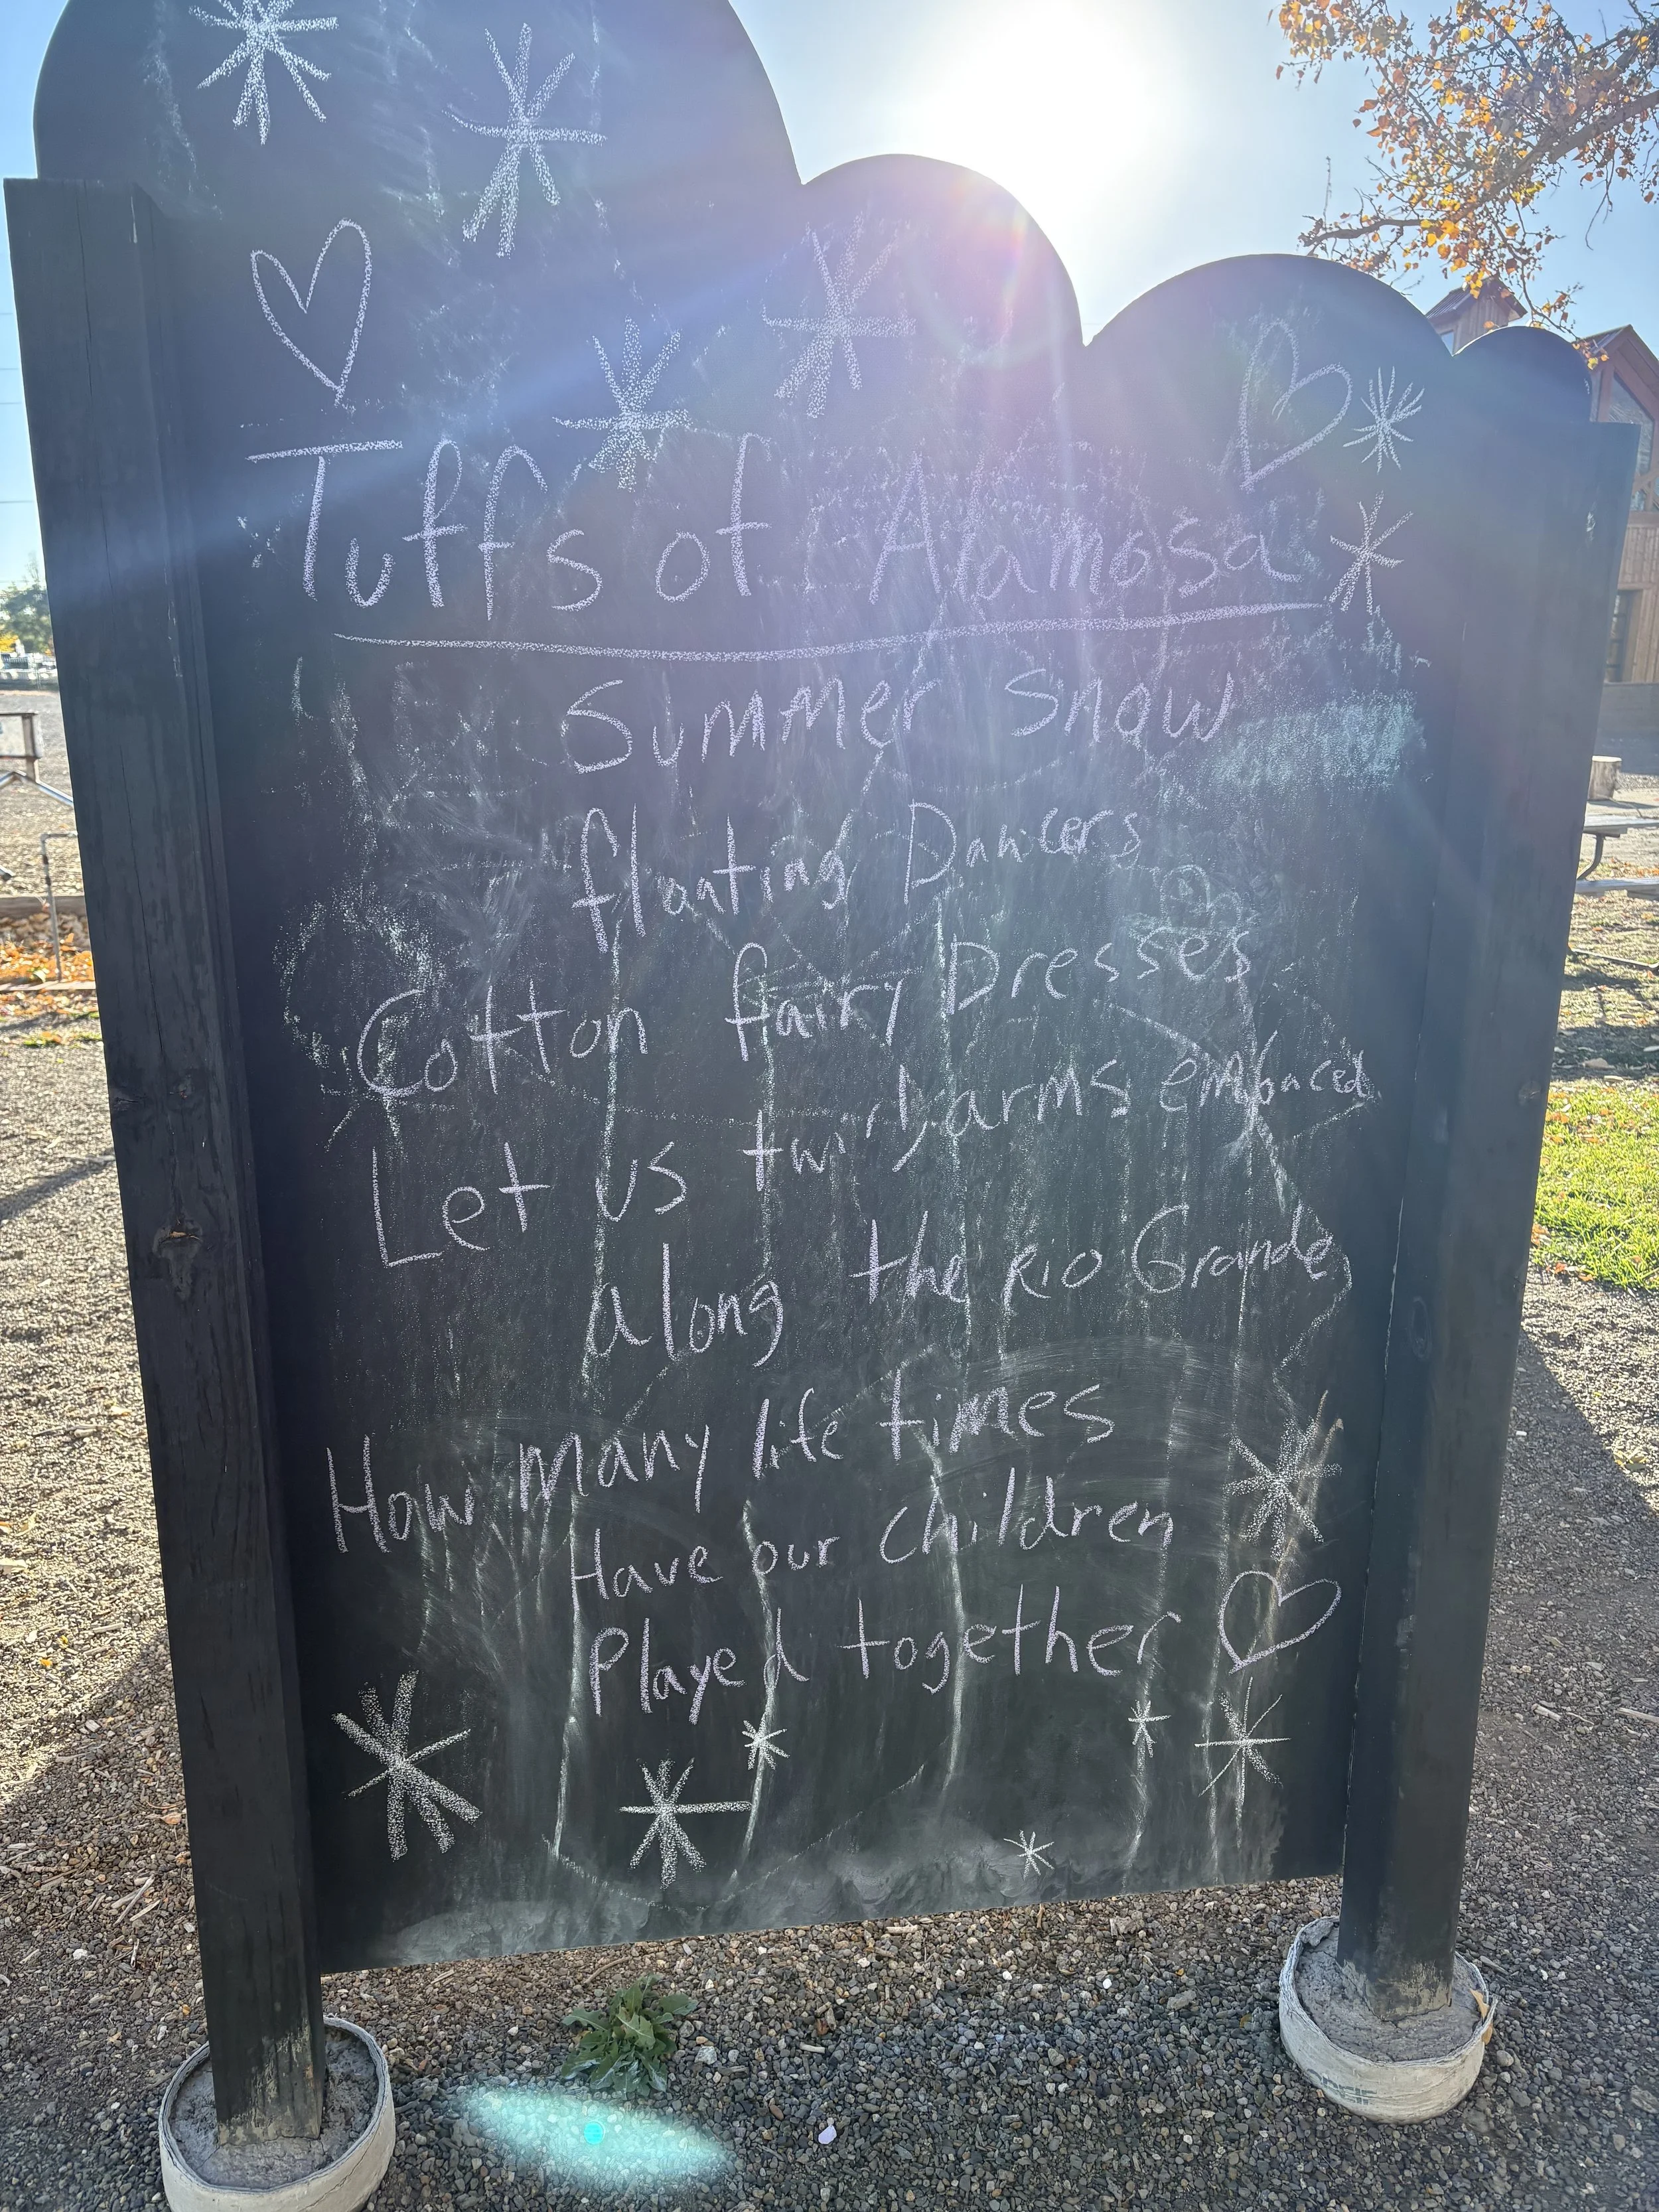 Tuffs of Alamosa
Summer Snow
floating Dancers
Cotton fairy Dresses
Let us twirl, arms embraced
along the Rio Grande
How many life times
Have our children
Played together